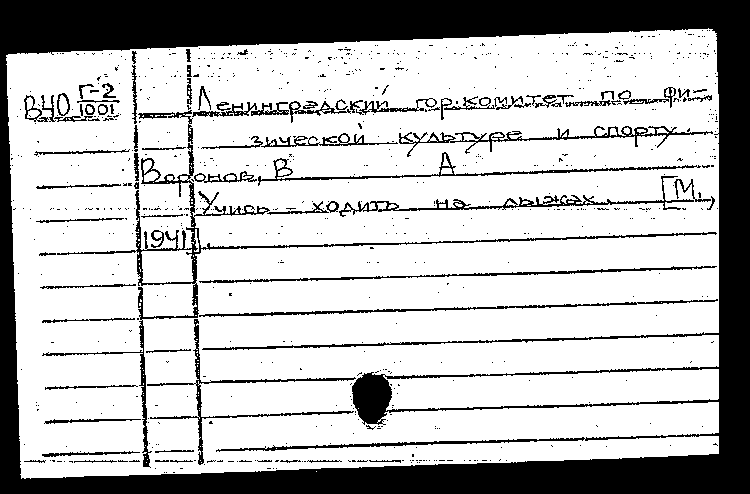 В40 Г-2/1001
Ленинградский гор. комитет по фи-
зической культуре и спорту.
Воронов, В А
Учись ходить на лыжах. [М.,
1941].